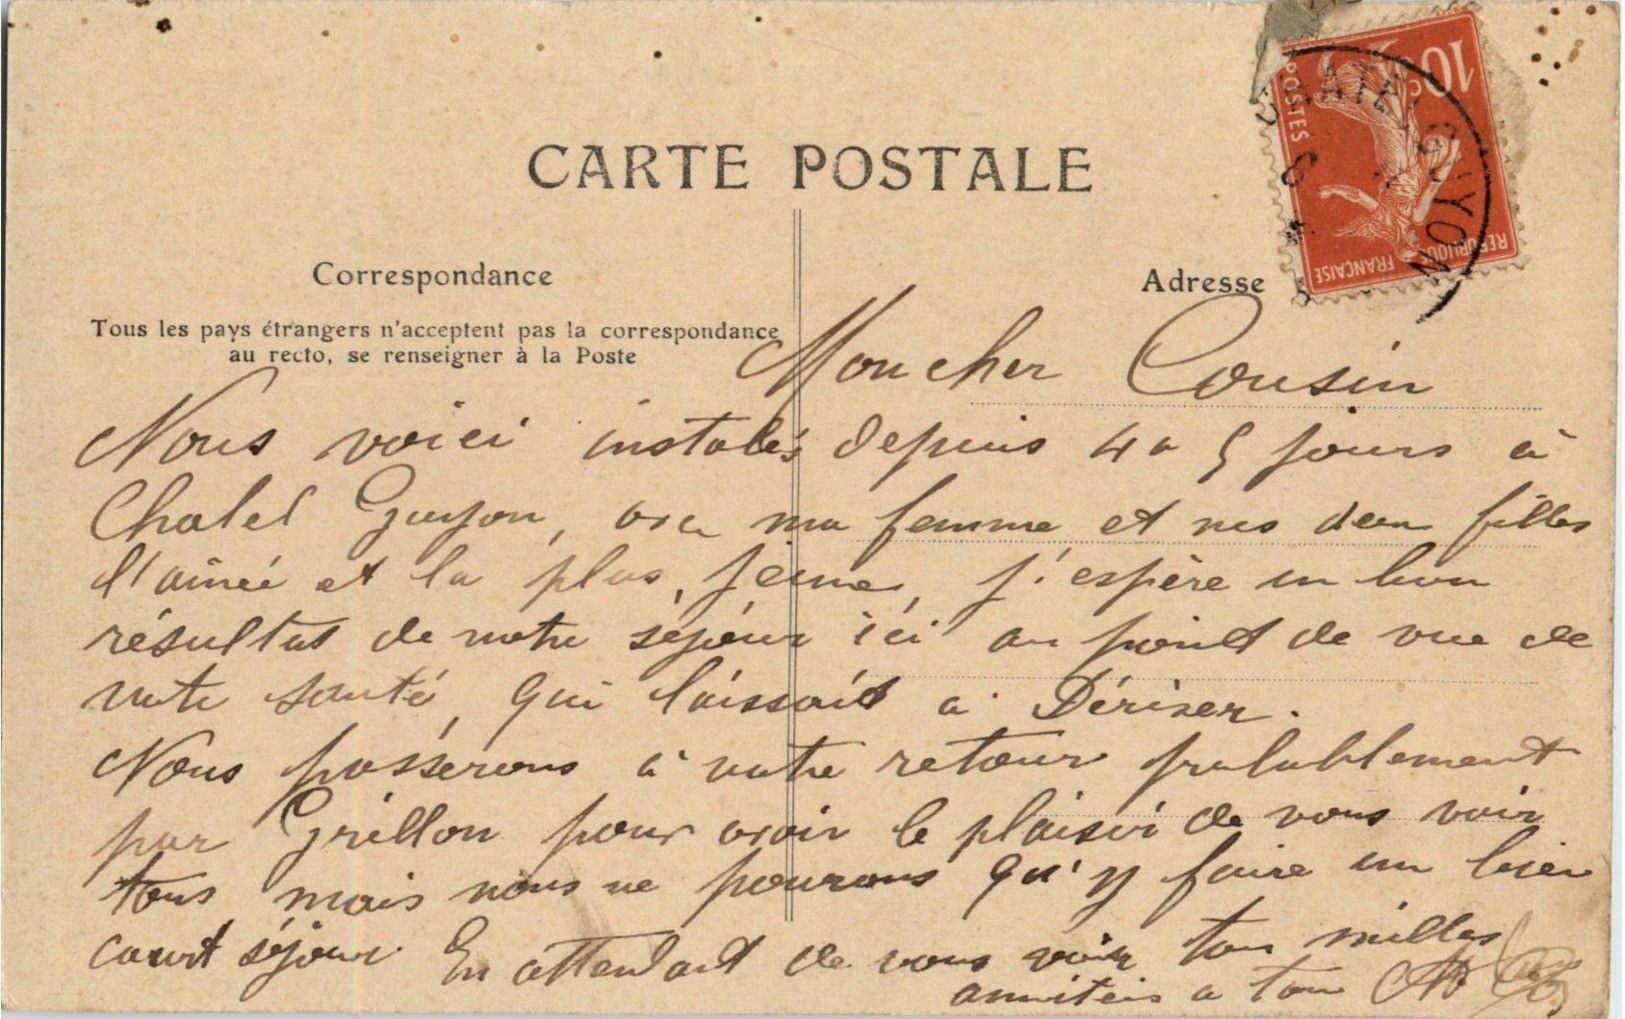 CARTE POSTALE
Correspondance
Tous les pays étrangers n'acceptent pas la correspondance
au recto, se renseigner à la Poste
Adresse
10c
POSTES
REPUBLIQUE FRANÇAISE
CHATEL GUYON
Mon cher Cousin
Nous voici instalés depuis 4 a 5 jours à
Chatel Guyon, avec ma femme et nos deux filles
l'ainée et la plus jeune, j'espère un bon
résultat de notre séjour ici au point de vue de
notre santé, qui laissait a Désirer.
Nous passerons à notre retour probablement
par Grillon pour avoir le plaisir de vous voir
tous mais nous ne pourons qu'y faire un bien
court séjour. En attendant de vous voir tous milles
amitiés a tous